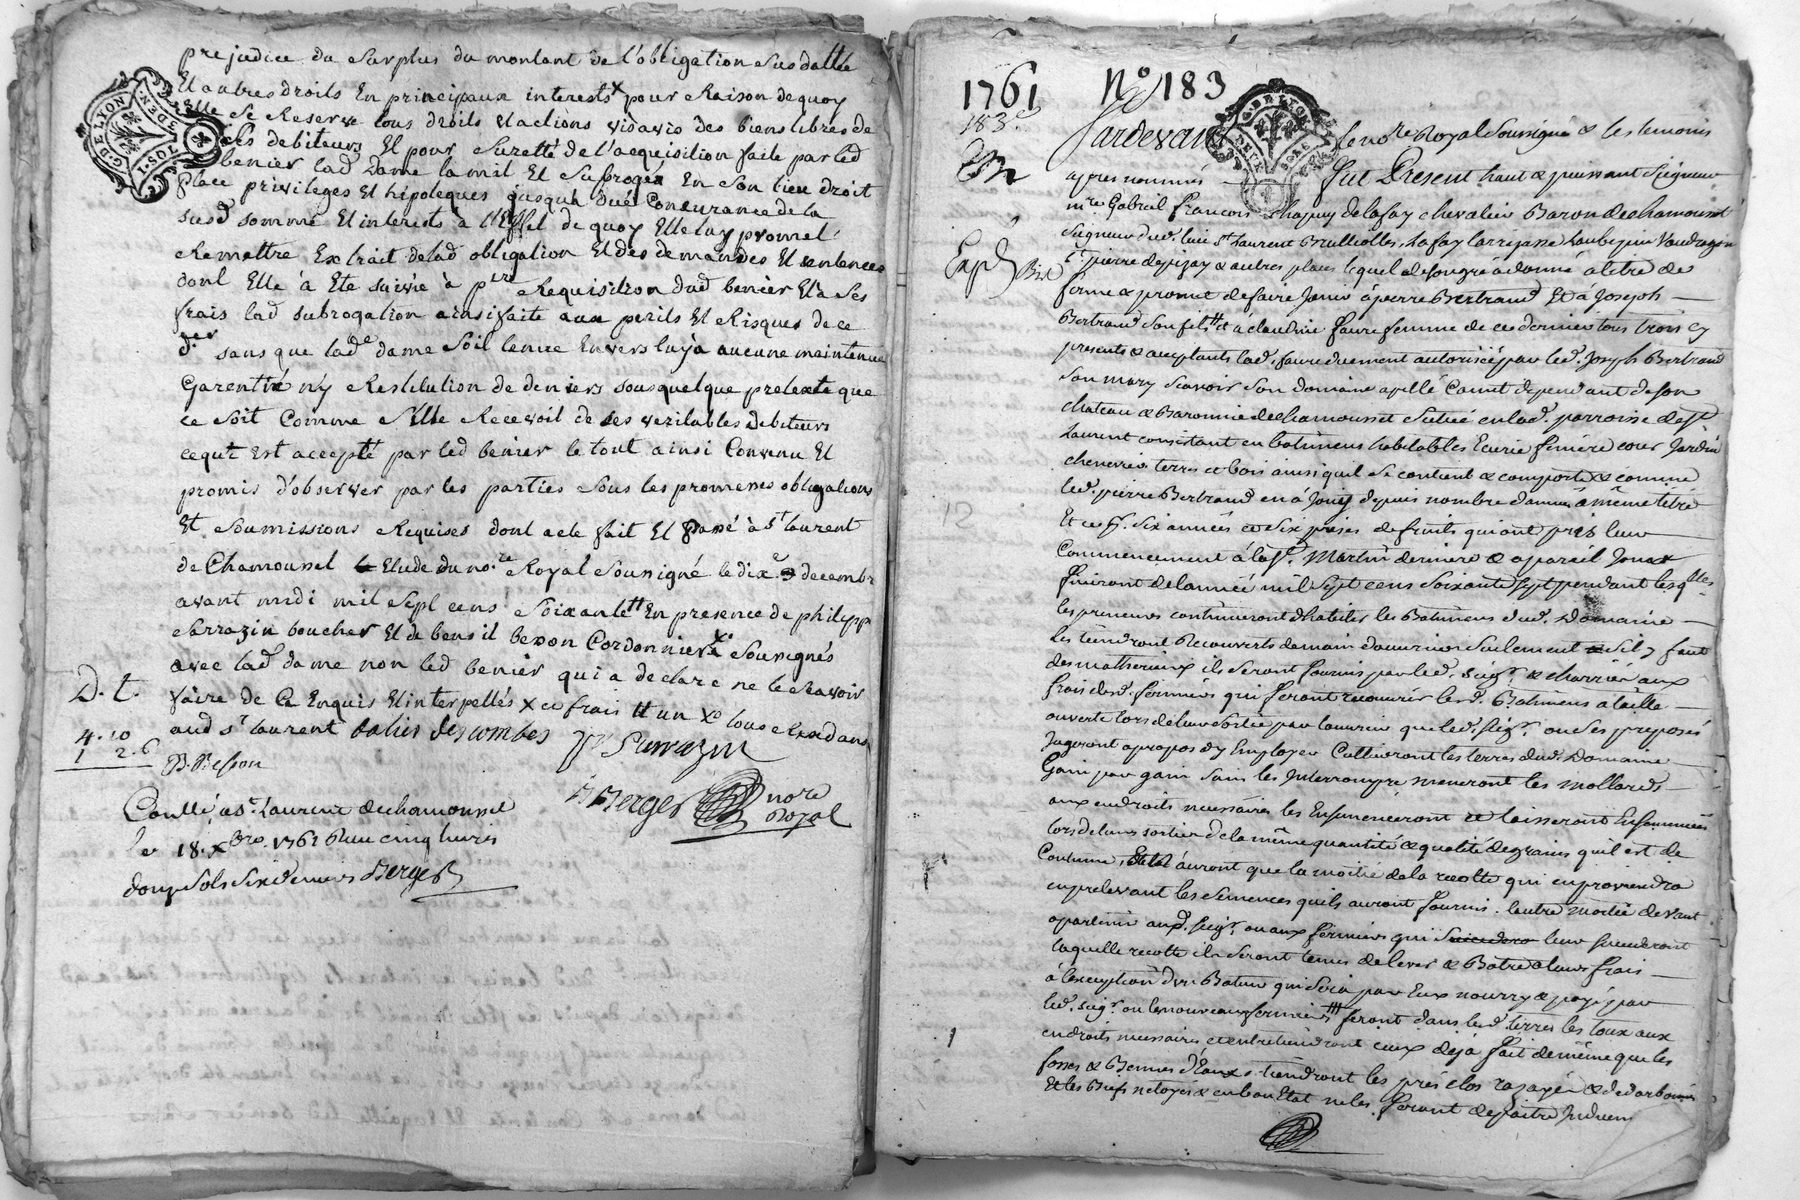 prejudice du surplus du montant de l'obligation susdattée
Et autres droits En principaux interests x pour Raison de quoy
Elle se Reserve tous droits et actions vis avis des biens libres de
ses debiteurs Et pour suretté de l'acquisition faite par led
benier lad Dame la mit Et subrogea En son lieu droit
place privileges Et hipoteques jusqua düe Concurance de la
susd somme Et interests à l'Effet de quoy Elle luy promet
Remettre Extrait de lad obligation Et des demandes Et sentences
dont Elle à Eté suivie à pre Requisition dud benier Et à ses
frais lad subrogation ainsi faite aux perils Et Risques de ce
der sans que lad dame soit tenue Envers luy à aucune maintenue
Garentie n'y Restitution de deniers sous quelque pretexte que
ce soit Comme s'Elle Recevoit de ses veritables debiteurs
ce qui Est accepté par led benier le tout ainsi Convenu Et
promis d'observer par les parties sous les promesses obligations
Et soumissions Requises dont acte fait Et passé à st laurent
de Chamousset Etude du nore Royal soussigné le dixe decembre
avant midi mil sept cens soixante tt En presence de philipp
sarrazin boucher Et de benoit bexon Cordonnier x soussignés
avec lad dame non led benier qui a declaré ne le sçavoir
faire de Ce Enquis Et interpellés x ce frais tt un x tous deux dans
aud st laurent
P Sarrazin
D. t.
4. 10
1 2. 6
B. Besson
Berger nore
Royal
Conllé, a st Laurent de chamousset
le 18. xbre. 1761 Reçu cinq livres
douze sols six deniers Berger
G. DE LYON
3 DEN.
1 SOL
1761 No 183
183e
G. DE LYON
DEUX SOLS
Pardevant le nore Royal soussigné & les temoins
apres nommés — fut Present haut & puissant seigneur
mre Gabriel francois chapuy de la fay chevalier Baron de chamousset
seigneur dud. lieu st Laurent Brullioles, La fay Larrajasse Laubepin
st pierre & autres places lequel de son gré a donné a titre de
ferme & promet de faire Jouir à pierre Bertrand Et à Joseph —
Bertrand son fils tt & à claudine faure femme de ce dernier tous trois cy
presents & acceptants lad. faure duement autorisée par led. Joseph Bertrand
son mary sçavoir son domaine apellé dependant de son
chateau & Baronnie de chamousset situé en lad. parroisse de st
Laurent consistant en batimens habitables Ecurie feniere cour Jardin
chenevier terres et bois ainsi quil se contient & comporte & comme
led. pierre Bertrand en à Jouy depuis nombre d'années à même titre
Et ce pr. six années et six prises de fruits qui ont pris leur
Commencement à la st. Martin derniere & à pareil Jour
finiront de l'année mil sept cens soixante sept pendant lesqlles
les preneurs continueront d'habiter les Batimens dud. Domaine —
Les tiendront Recouverts de main d'ouvrier seulement sil y faut
des matheriaux ils seront fournis par led. seigr. & charriés aux
frais desd. fermiers qui feront recouvrir lesd. Batimens à taille
ouverte lors de leur sortie par louvrier que led. seigr. ou ses preposés
Jugeront apropos dy Employer Cultiveront les terres dud. Domaine —
Gain par gain sans les Interrompre meneront les mollards —
aux endroits necessaires les Ensemenceront & laisseront Ensemencées
lors de leur sortie de la même quantité & qualité de grains quil est de
Coutume, n'auront que la moitié de la recolte qui en proviendra
en prelevant les semences quils auront fournis. l'autre moitié devant
apartenir aud. seigr. ou aux fermiers qui leur succederont
laquelle recolte ils seront tenus de lever & Battre a leurs frais —
à l'exception d'un Batteur qui sera par Eux nourry & payé par
led. seigr. ou le nouveau fermier ttt feront dans lesd. terres les toux aux
endroits necessaires et entretiendront ceux déja fait de même que les
fosses & Bennes d'Eaux tiendront les prés clos razayés & dedarbonnés
Et les Biefs netoyés & en bon Etat ne les feront depaitre Induem